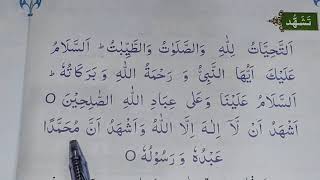 تشہّد
اَلتَّحِيَّاتُ لِلّٰهِ وَالصَّلَوٰتُ وَالطَّيِّبٰتُ ؕ اَلسَّلَامُ
عَلَيْكَ اَيُّهَا النَّبِىُّ وَ رَحْمَةُ اللّٰهِ وَ بَرَكَاتُهٗ ؕ
اَلسَّلَامُ عَلَيْنَا وَعَلٰى عِبَادِ اللّٰهِ الصّٰلِحِيْنَ ○
اَشْهَدُ اَنْ لَّآ اِلٰهَ اِلَّا اللّٰهُ وَاَشْهَدُ اَنَّ مُحَمَّدًا
عَبْدُهٗ وَ رَسُوْلُهٗ ○